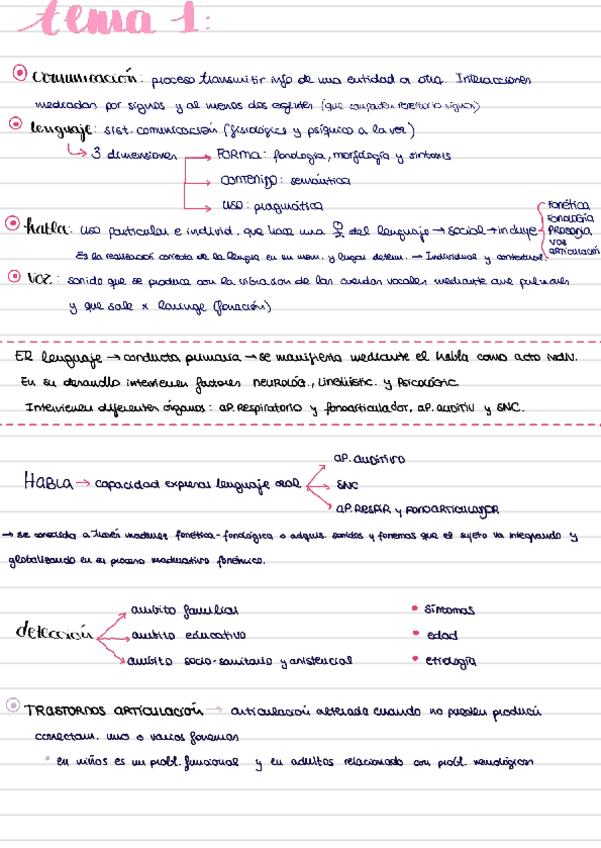 tema 1:
comunicación: proceso transmitir info de una entidad a otra. Interacciones
mediadas por signos y al menos dos agentes (que comparten repertorio signos)
lenguaje: sist. comunicación (fisiológico y psíquico a la vez)
↳ 3 dimensiones → FORMA: fonología, morfología y sintaxis
→ CONTENIDO: semántica
→ USO: pragmática
habla: uso particular e individ. que hace una del lenguaje → social → incluye
FONÉTICA
FONOLOGÍA
PROSODIA
VOZ
ARTICULACIÓN
Es la realización correcta de la lengua en un mom. y lugar determ. → Individual y contextual
VOZ: sonido que se produce con la vibración de las cuerdas vocales mediante aire pulmones
y que sale x laringe (fonación)
El lenguaje → conducta primaria → se manifiesta mediante el habla como acto INDIV.
En su desarrollo intervienen factores NEUROLÓG., LINGÜÍSTIC. y PSICOLÓGIC.
Intervienen diferentes órganos: AP. RESPIRATORIO y fonoarticulador, AP. AUDITIV y SNC.
HABLA → capacidad expresar lenguaje oral
AP. AUDITIVO
SNC
AP. RESPIR y FONOARTICULADOR
→ se consolida a través madurez fonética-fonológica o adquis. sonidos y fonemas que el sujeto va integrando y
globalizando en su proceso madurativo fonémico.
detección
ámbito familiar
ámbito educativo
ámbito socio-sanitario y asistencial
• síntomas
• edad
• etiología
TRASTORNOS ARTICULACIÓN → articulación alterada cuando no pueden producir
correctam. uno o varios fonemas
• en niños es un probl. funcional y en adultos relacionado con probl. neurológicos